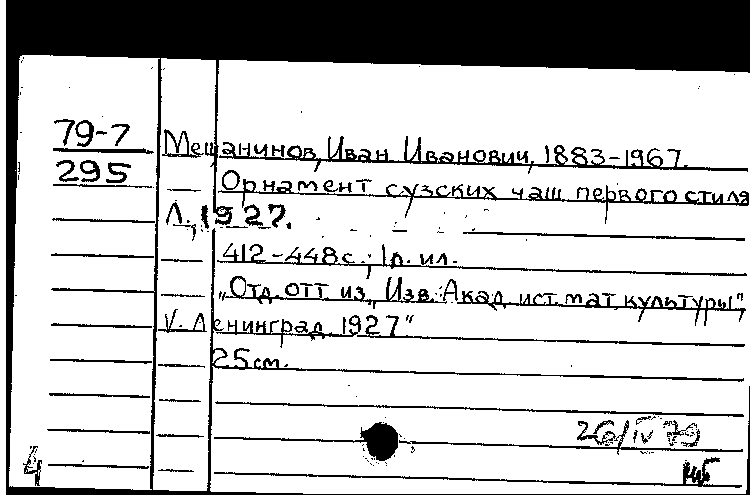 79-7
Мещанинов, Иван Иванович, 1883-1967.
295
Орнамент сузских чаш первого стиля
Л., 1927.
412-448 с.; 1 л. ил.
„Отд. отт. из „Изв. Акад. ист. мат. культуры",
V. Ленинград 1927"
25 см.
26/IV 79
4